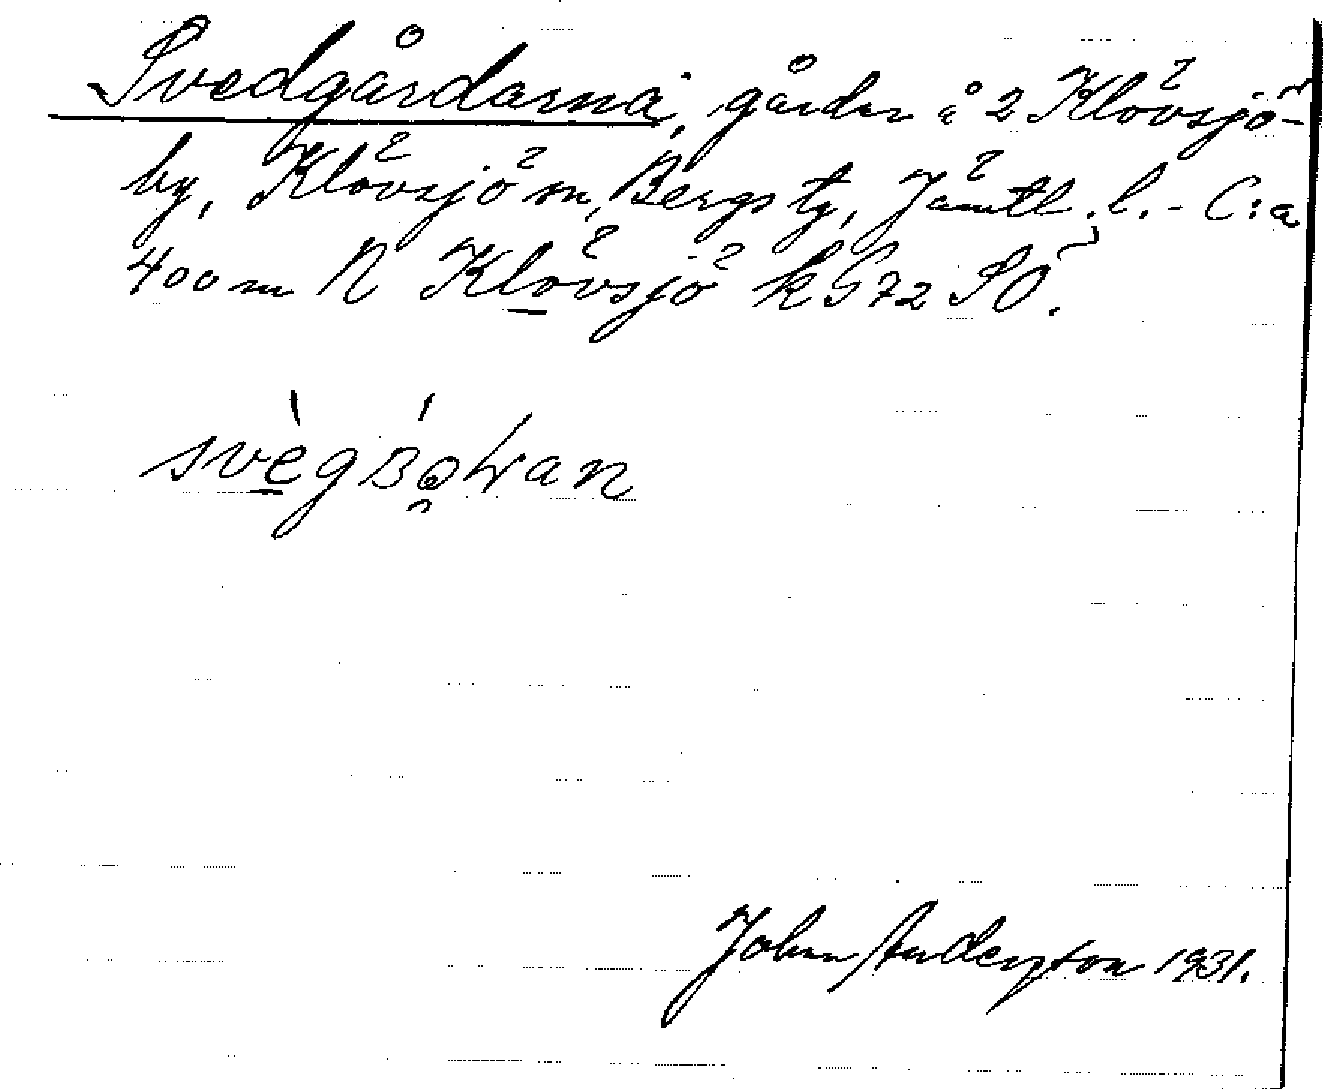 Svedgårdarna, gårdar å 2 Klövsjö-
by, Klövsjö sn, Bergs tg, Jämtl. l. - C:a
400 m N Klövsjö k G 72 SÖ.
John Anderzton 1931.